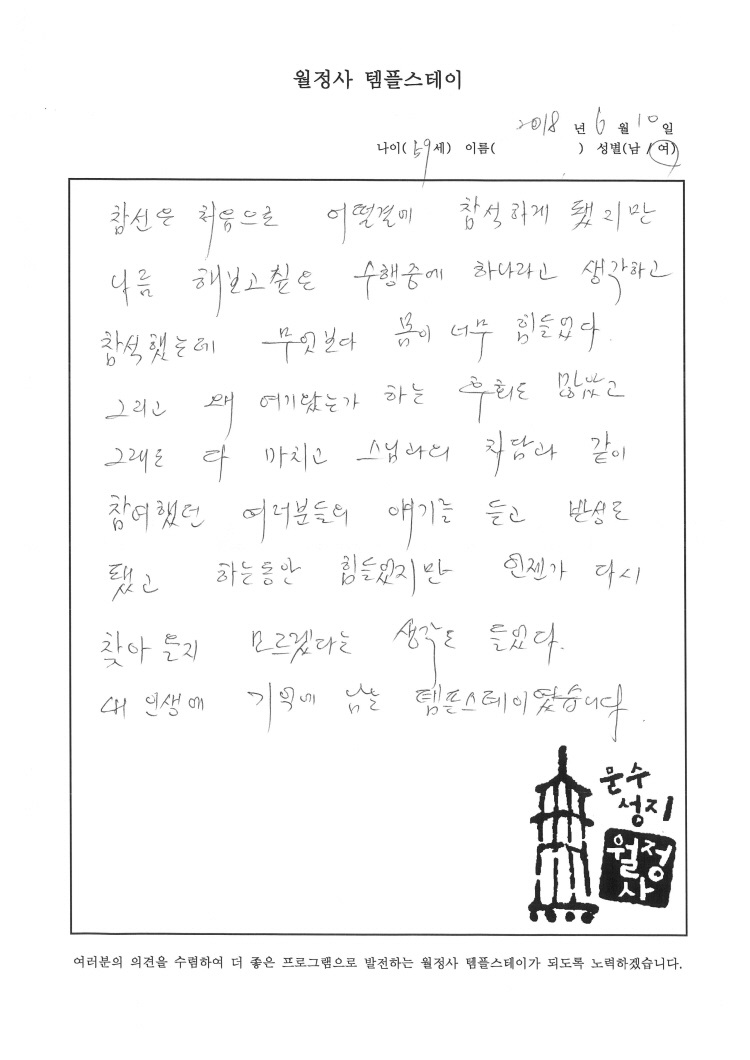 월정사 템플스테이
2018 년 6 월 10 일
나이( 59 세) 이름( ) 성별(남 / 여)
참선은 처음으로 어떨결에 참석하게 됐지만
나름 해보고싶은 수행중에 하나라고 생각하고
참석했는데 무엇보다 몸이 너무 힘들었다.
그리고 왜 여기왔는가 하는 후회도 많았고
그래도 다 마치고 스님과의 차담과 같이
참여했던 여러분들의 얘기를 듣고 반성도
됐고 하는동안 힘들었지만 언젠가 다시
찾아 올지 모르겠다는 생각도 들었다.
내 인생에 기억에 남는 템플스테이였습니다.
문수
성지
월정
사
여러분의 의견을 수렴하여 더 좋은 프로그램으로 발전하는 월정사 템플스테이가 되도록 노력하겠습니다.